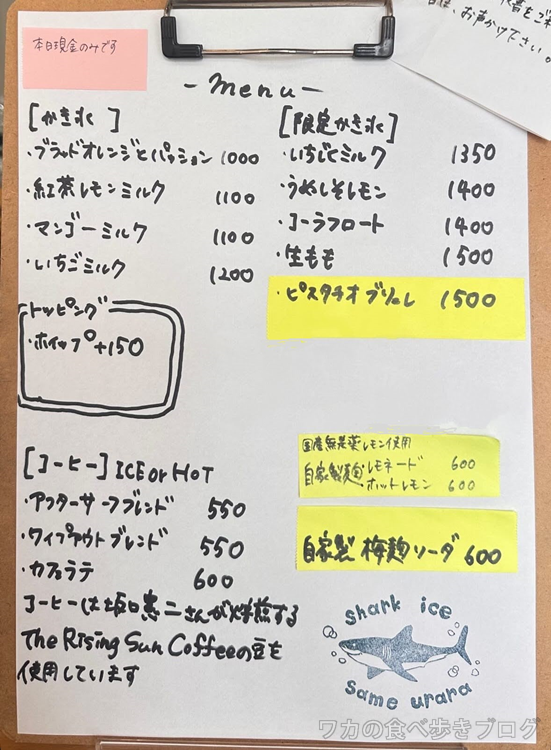 本日現金のみです
-menu-
[かき氷]
・ブラッドオレンジとパッション 1000
・紅茶レモンミルク 1100
・マンゴーミルク 1100
・いちごミルク 1200
トッピング
・ホイップ +150
[限定かき氷]
・いちじくミルク 1350
・うめしそレモン 1400
・コーラフロート 1400
・生もも 1500
・ピスタチオブリュレ 1500
[コーヒー] ICE or HOT
・アフターサーフブレンド 550
・ワイプアウトブレンド 550
・カフェラテ 600
コーヒーは坂口憲二さんが焙煎する
The Rising Sun Coffeeの豆を
使用しています
国産無農薬レモン使用
自家製麹レモネード 600
ホットレモン 600
自家製 梅麹ソーダ 600
Shark ice
Same urara
お声かけ下さい。
ワカの食べ歩きブログ